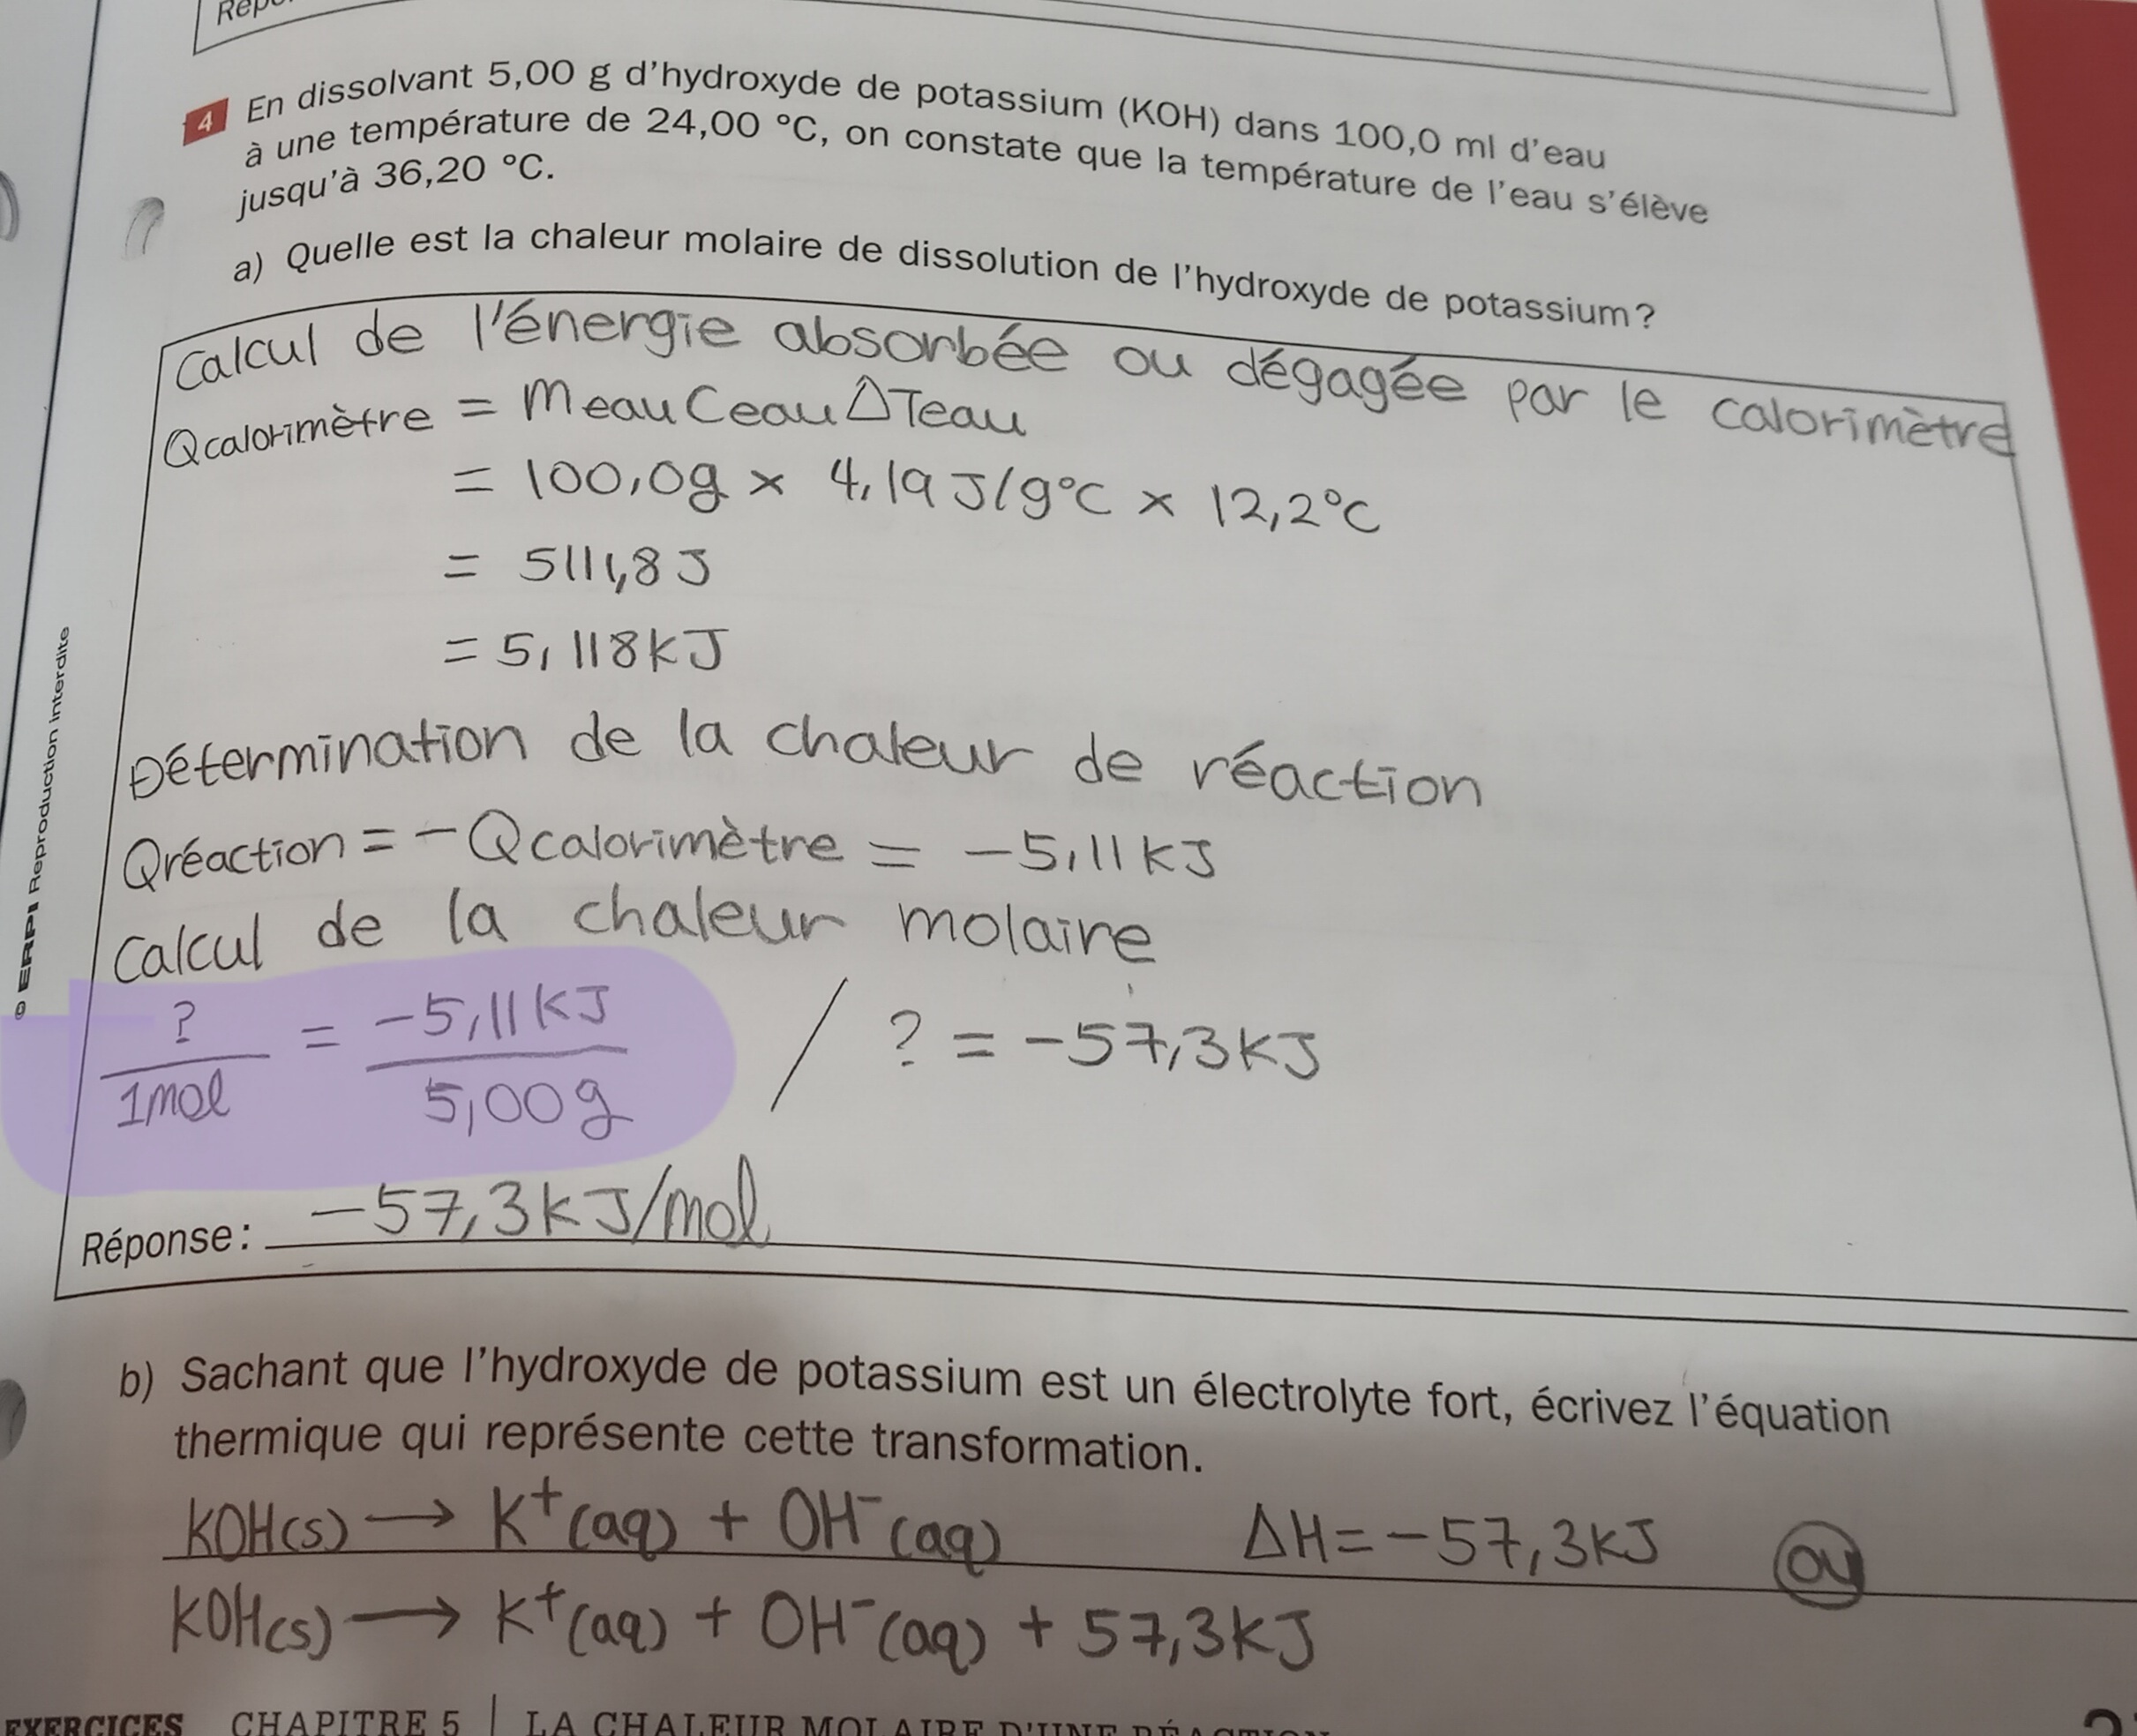 4 En dissolvant 5,00 g d'hydroxyde de potassium (KOH) dans 100,0 ml d'eau
à une température de 24,00 °C, on constate que la température de l'eau s'élève
jusqu'à 36,20 °C.
a) Quelle est la chaleur molaire de dissolution de l'hydroxyde de potassium?
Calcul de l'énergie absorbée ou dégagée par le calorimètre
Qcalorimètre = meau Ceau ΔTeau
= 100,0g × 4,19 J/g°C × 12,2°C
= 5111,8 J
= 5,118 kJ
Détermination de la chaleur de réaction
Qréaction = - Qcalorimètre = -5,11 kJ
Calcul de la chaleur molaire
?/1mol = -5,11 kJ/5,00g / ? = -57,3 kJ
Réponse: -57,3 kJ/mol
b) Sachant que l'hydroxyde de potassium est un électrolyte fort, écrivez l'équation
thermique qui représente cette transformation.
KOH(s) → K⁺(aq) + OH⁻(aq) ΔH = -57,3 kJ ou
KOH(s) → K⁺(aq) + OH⁻(aq) + 57,3 kJ
© ERPI Reproduction interdite
EXERCICES CHAPITRE 5 | LA CHALEUR MOLAIRE D'UNE RÉACTION